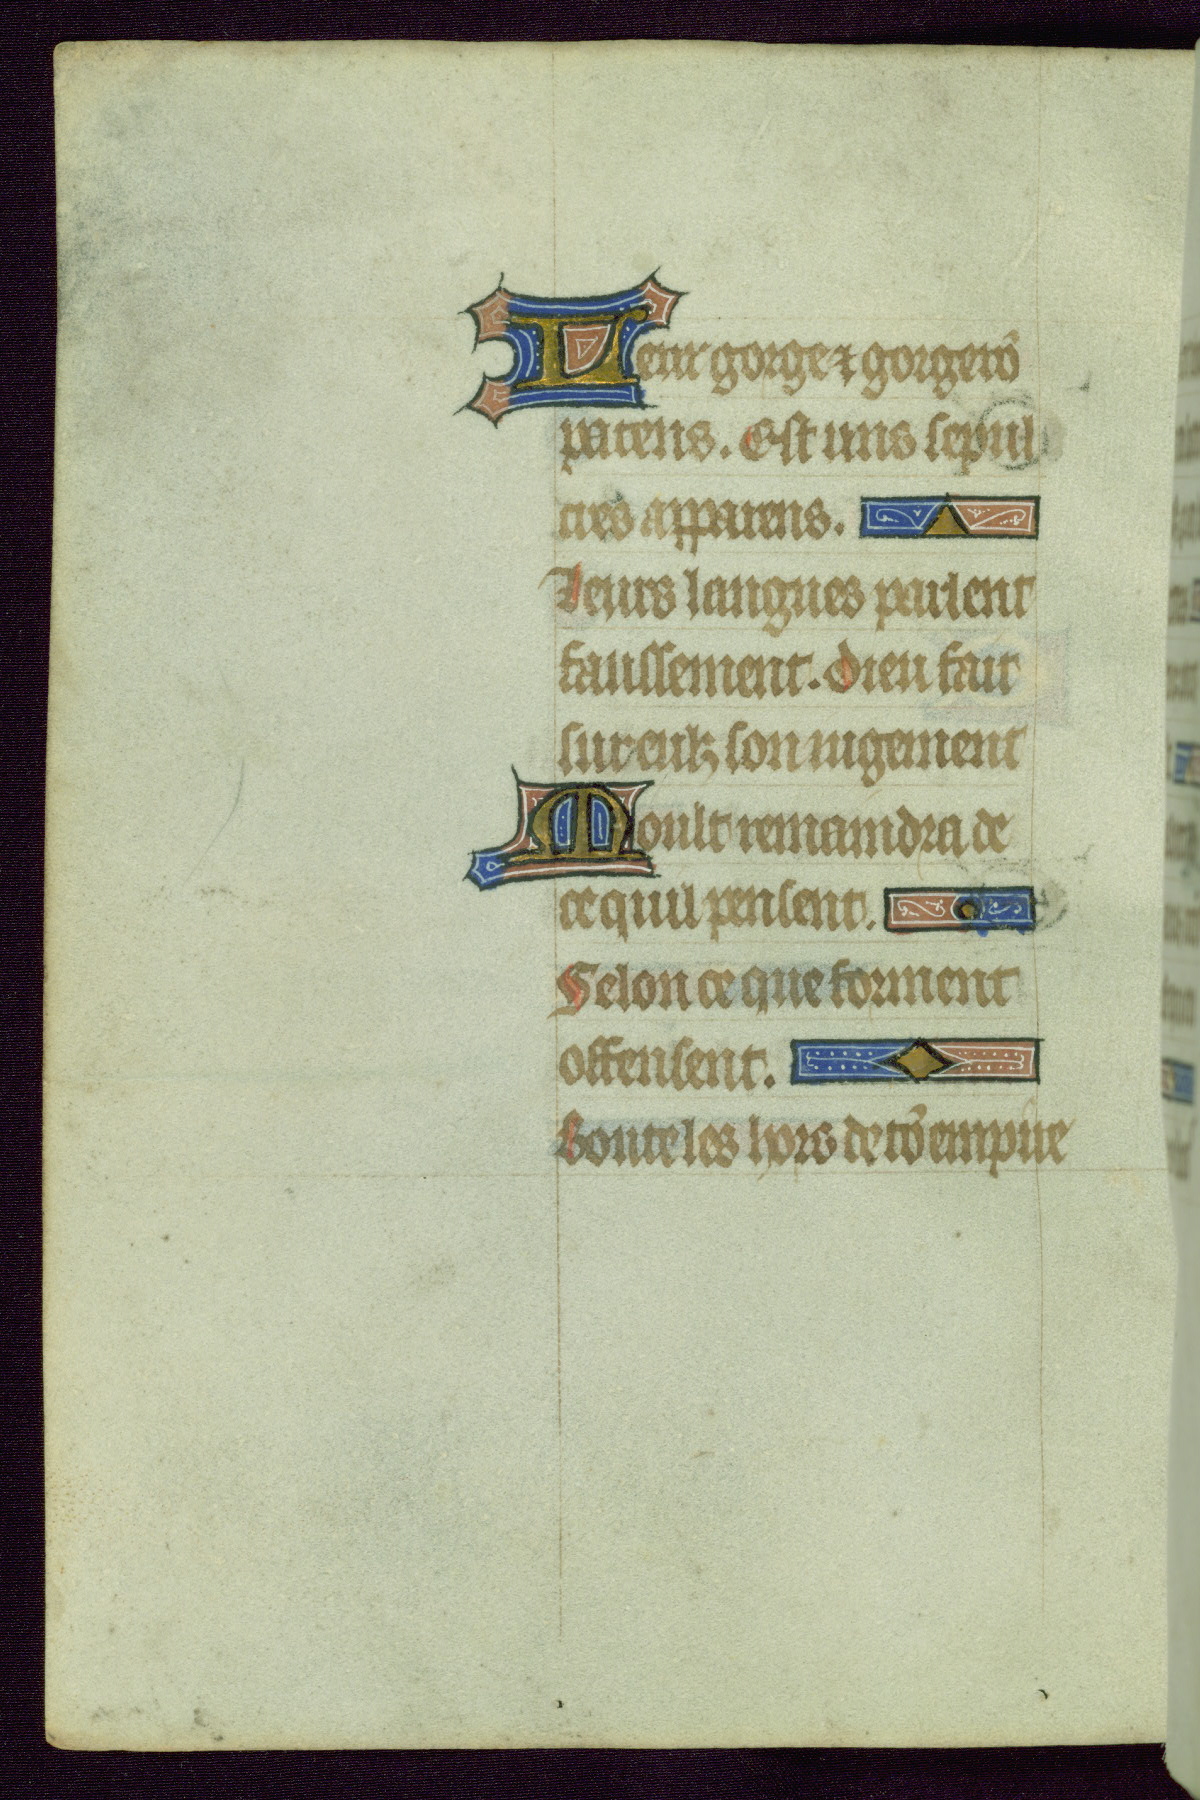 Leur gorge ⁊ gorgetō
patens. Est uns sepul
cres apparens.
Leurs langues parlent
faussement. Dieu fait
sur eulz son iugement
Moult remaindra de
ce quil pensent.
Selon ce que forment
offensent.
Boute les hors de tō empire